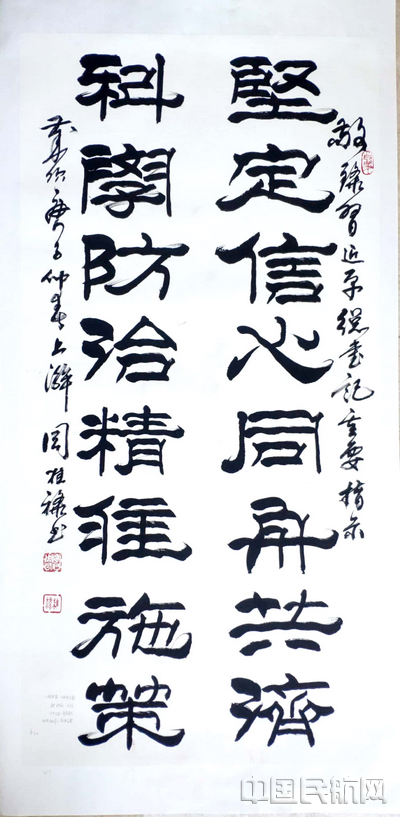 敬錄習近平總書記重要指示
堅定信心同舟共濟
科學防治精准施策
庚子仲春上澣 周桂祿书
中国民航网